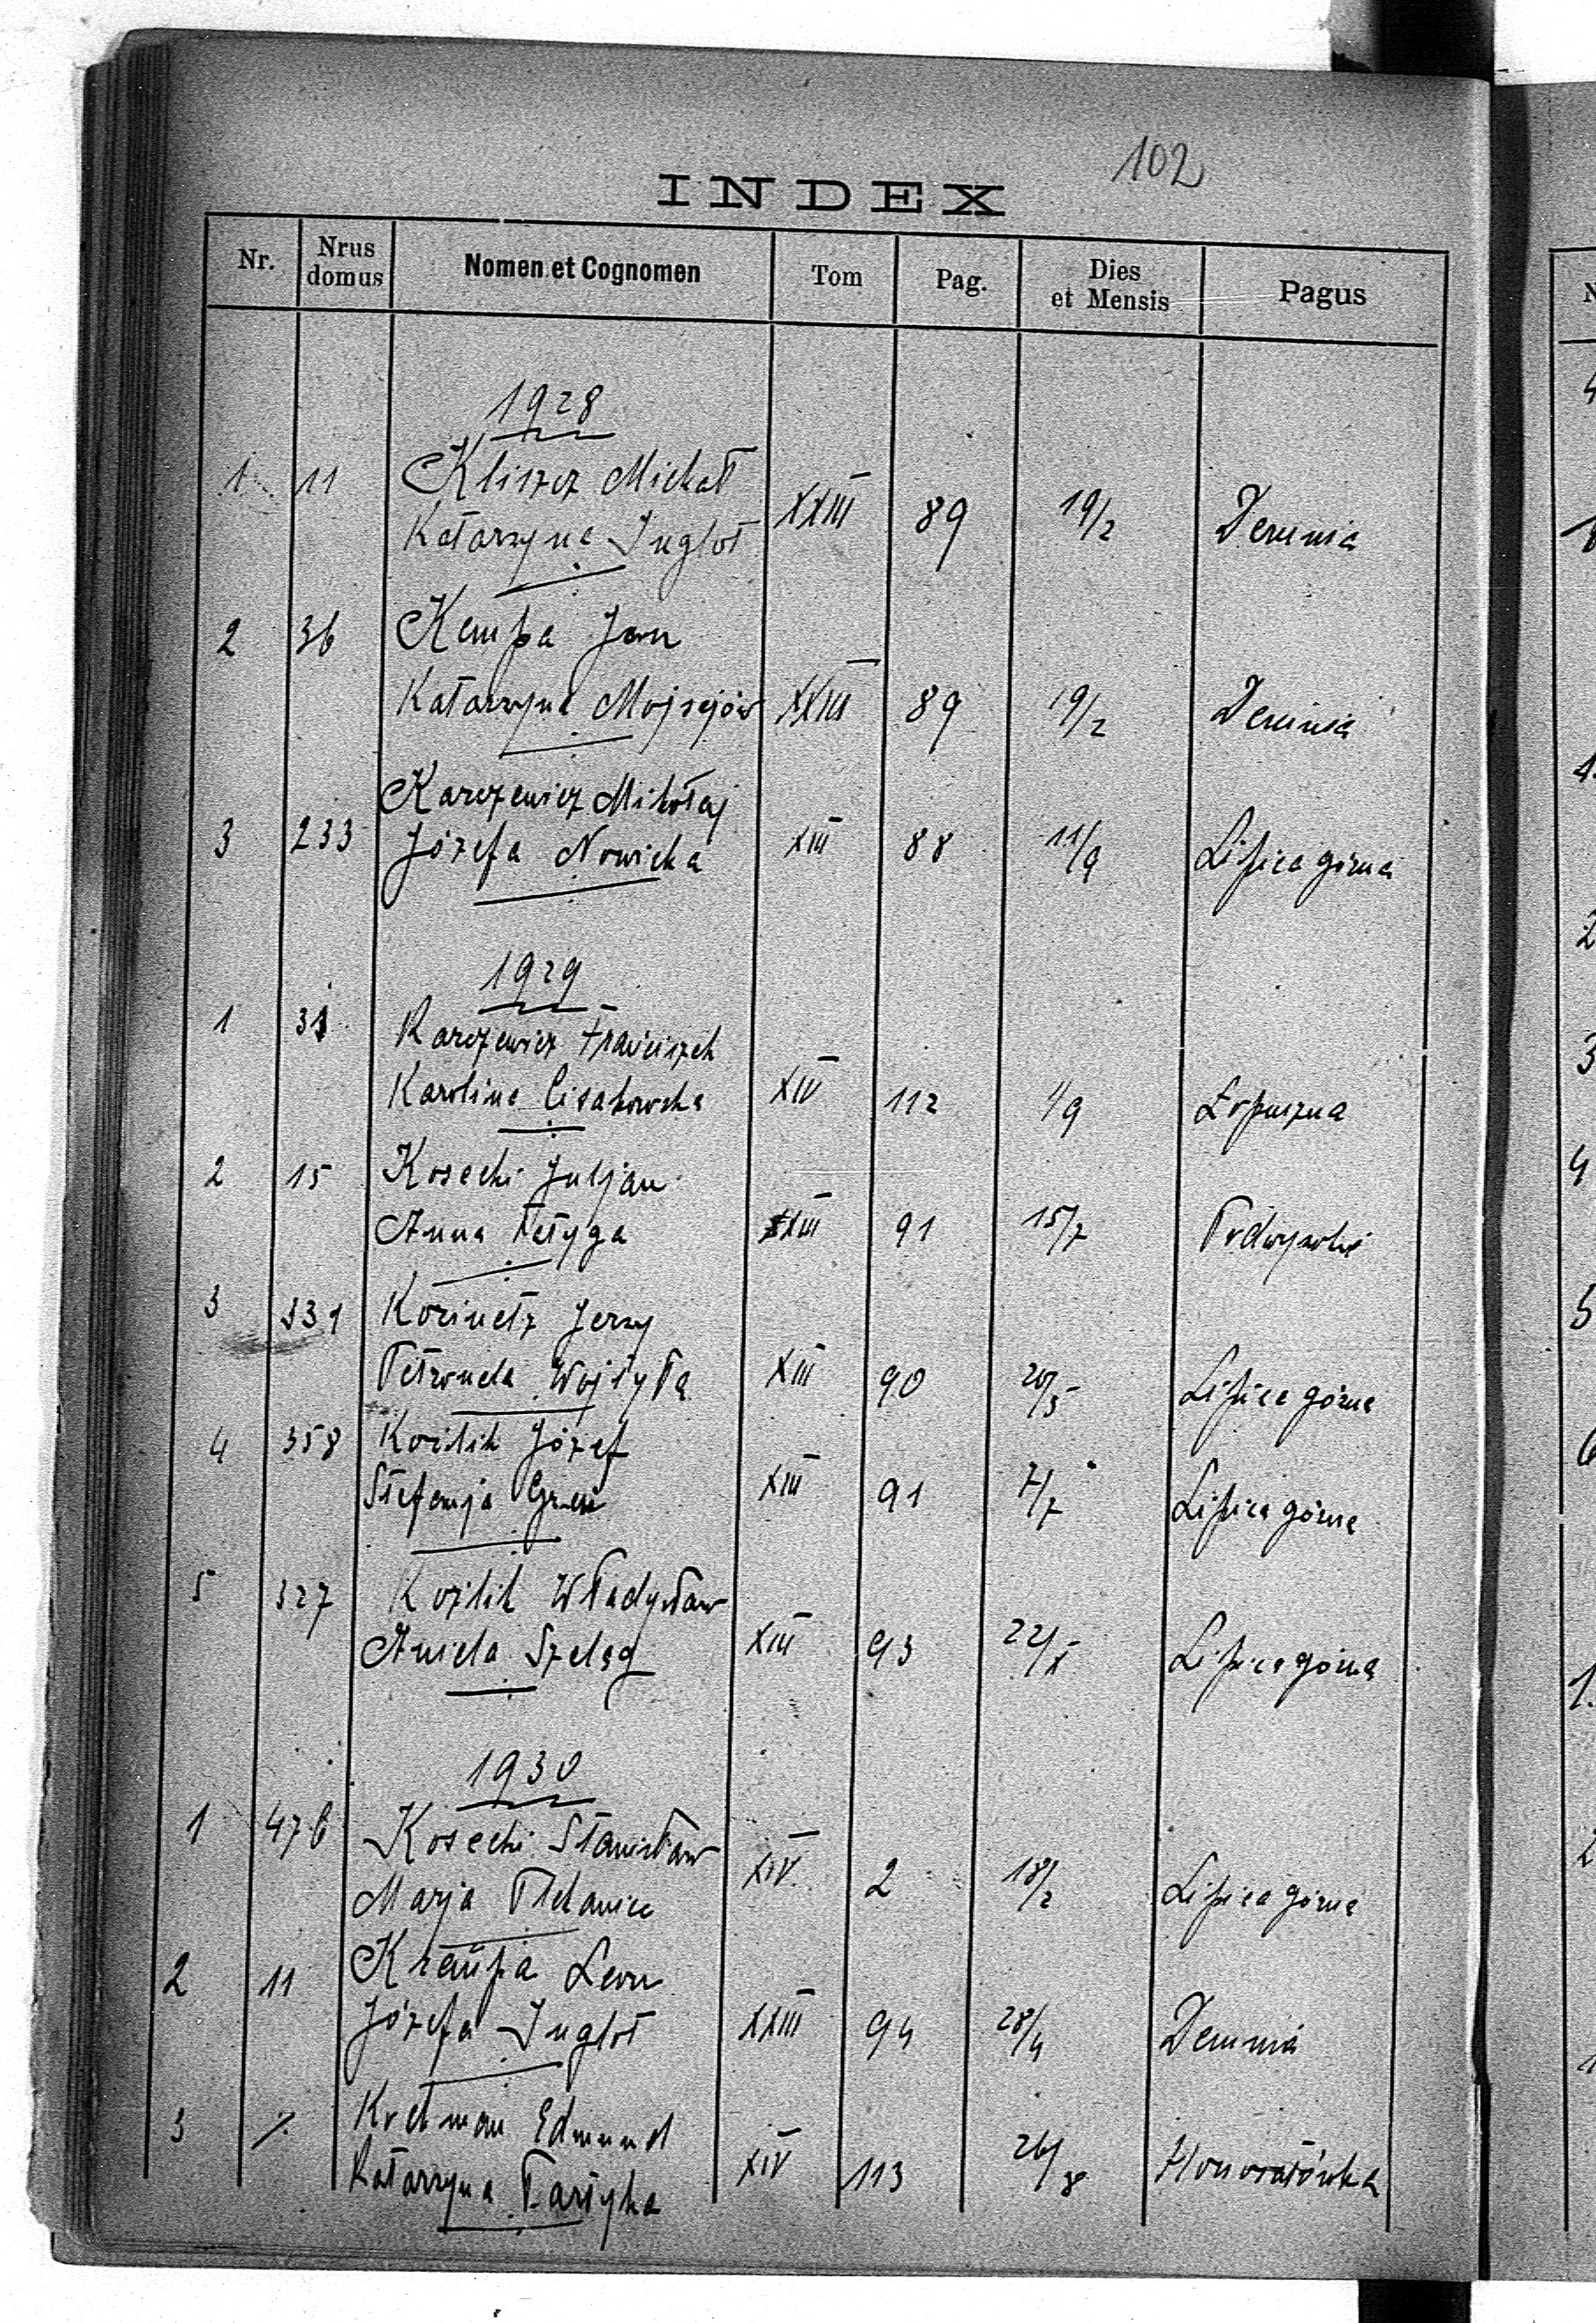 102
INDEX
Nr. Nrus domus Nomen et Cognomen Tom Pag. Dies et Mensis Pagus
1928
1 11 Kliszcz Michał
Katarzyna Inglot XXIII 89 19/2 Demnia
2 36 Kempa Jan
Katarzyna Mojsejów XXIII 89 19/2 Demnia
Karczewicz Mikołaj
3 233 Józefa Nowicka XIII 88 11/9 Lipica górna
1929
1 31 Karczewicz Franciszek
Karolina XIV 112 1/9 Łopuszna
2 15 Kosecki Juljan
Anna XXIII 91 15/7 Podwysokie
3 331 Korinetz Jerzy
Petronela Wojtyła XIII 90 20/5 Lipica górna
4 358 Koźlik Józef
Stefanja XIII 91 7/7 Lipica górna
5 327 Koźlik Władysław
Aniela Szeląg XIII 93 22/X Lipica górna
1930
1 476 Kosecki Stanisław
Marja XIV 2 18/2 Lipica górna
2 11 Kraupa Leon
Józefa Inglot XXIII 94 28/4 Demnia
3 Edmund
Katarzyna XIV 113 26/8 Honoratówka